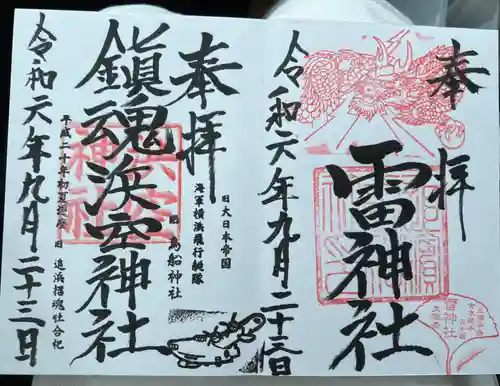 奉拝
雷神社
令和六年九月二十三日
雷神社
奉拝
旧大日本帝国
海軍横浜飛行艇隊
旧 鳥船神社
鎮魂 浜空神社
浜空神社
平成二十年初夏遷座 旧 追浜招魂社合祀
令和六年九月二十三日